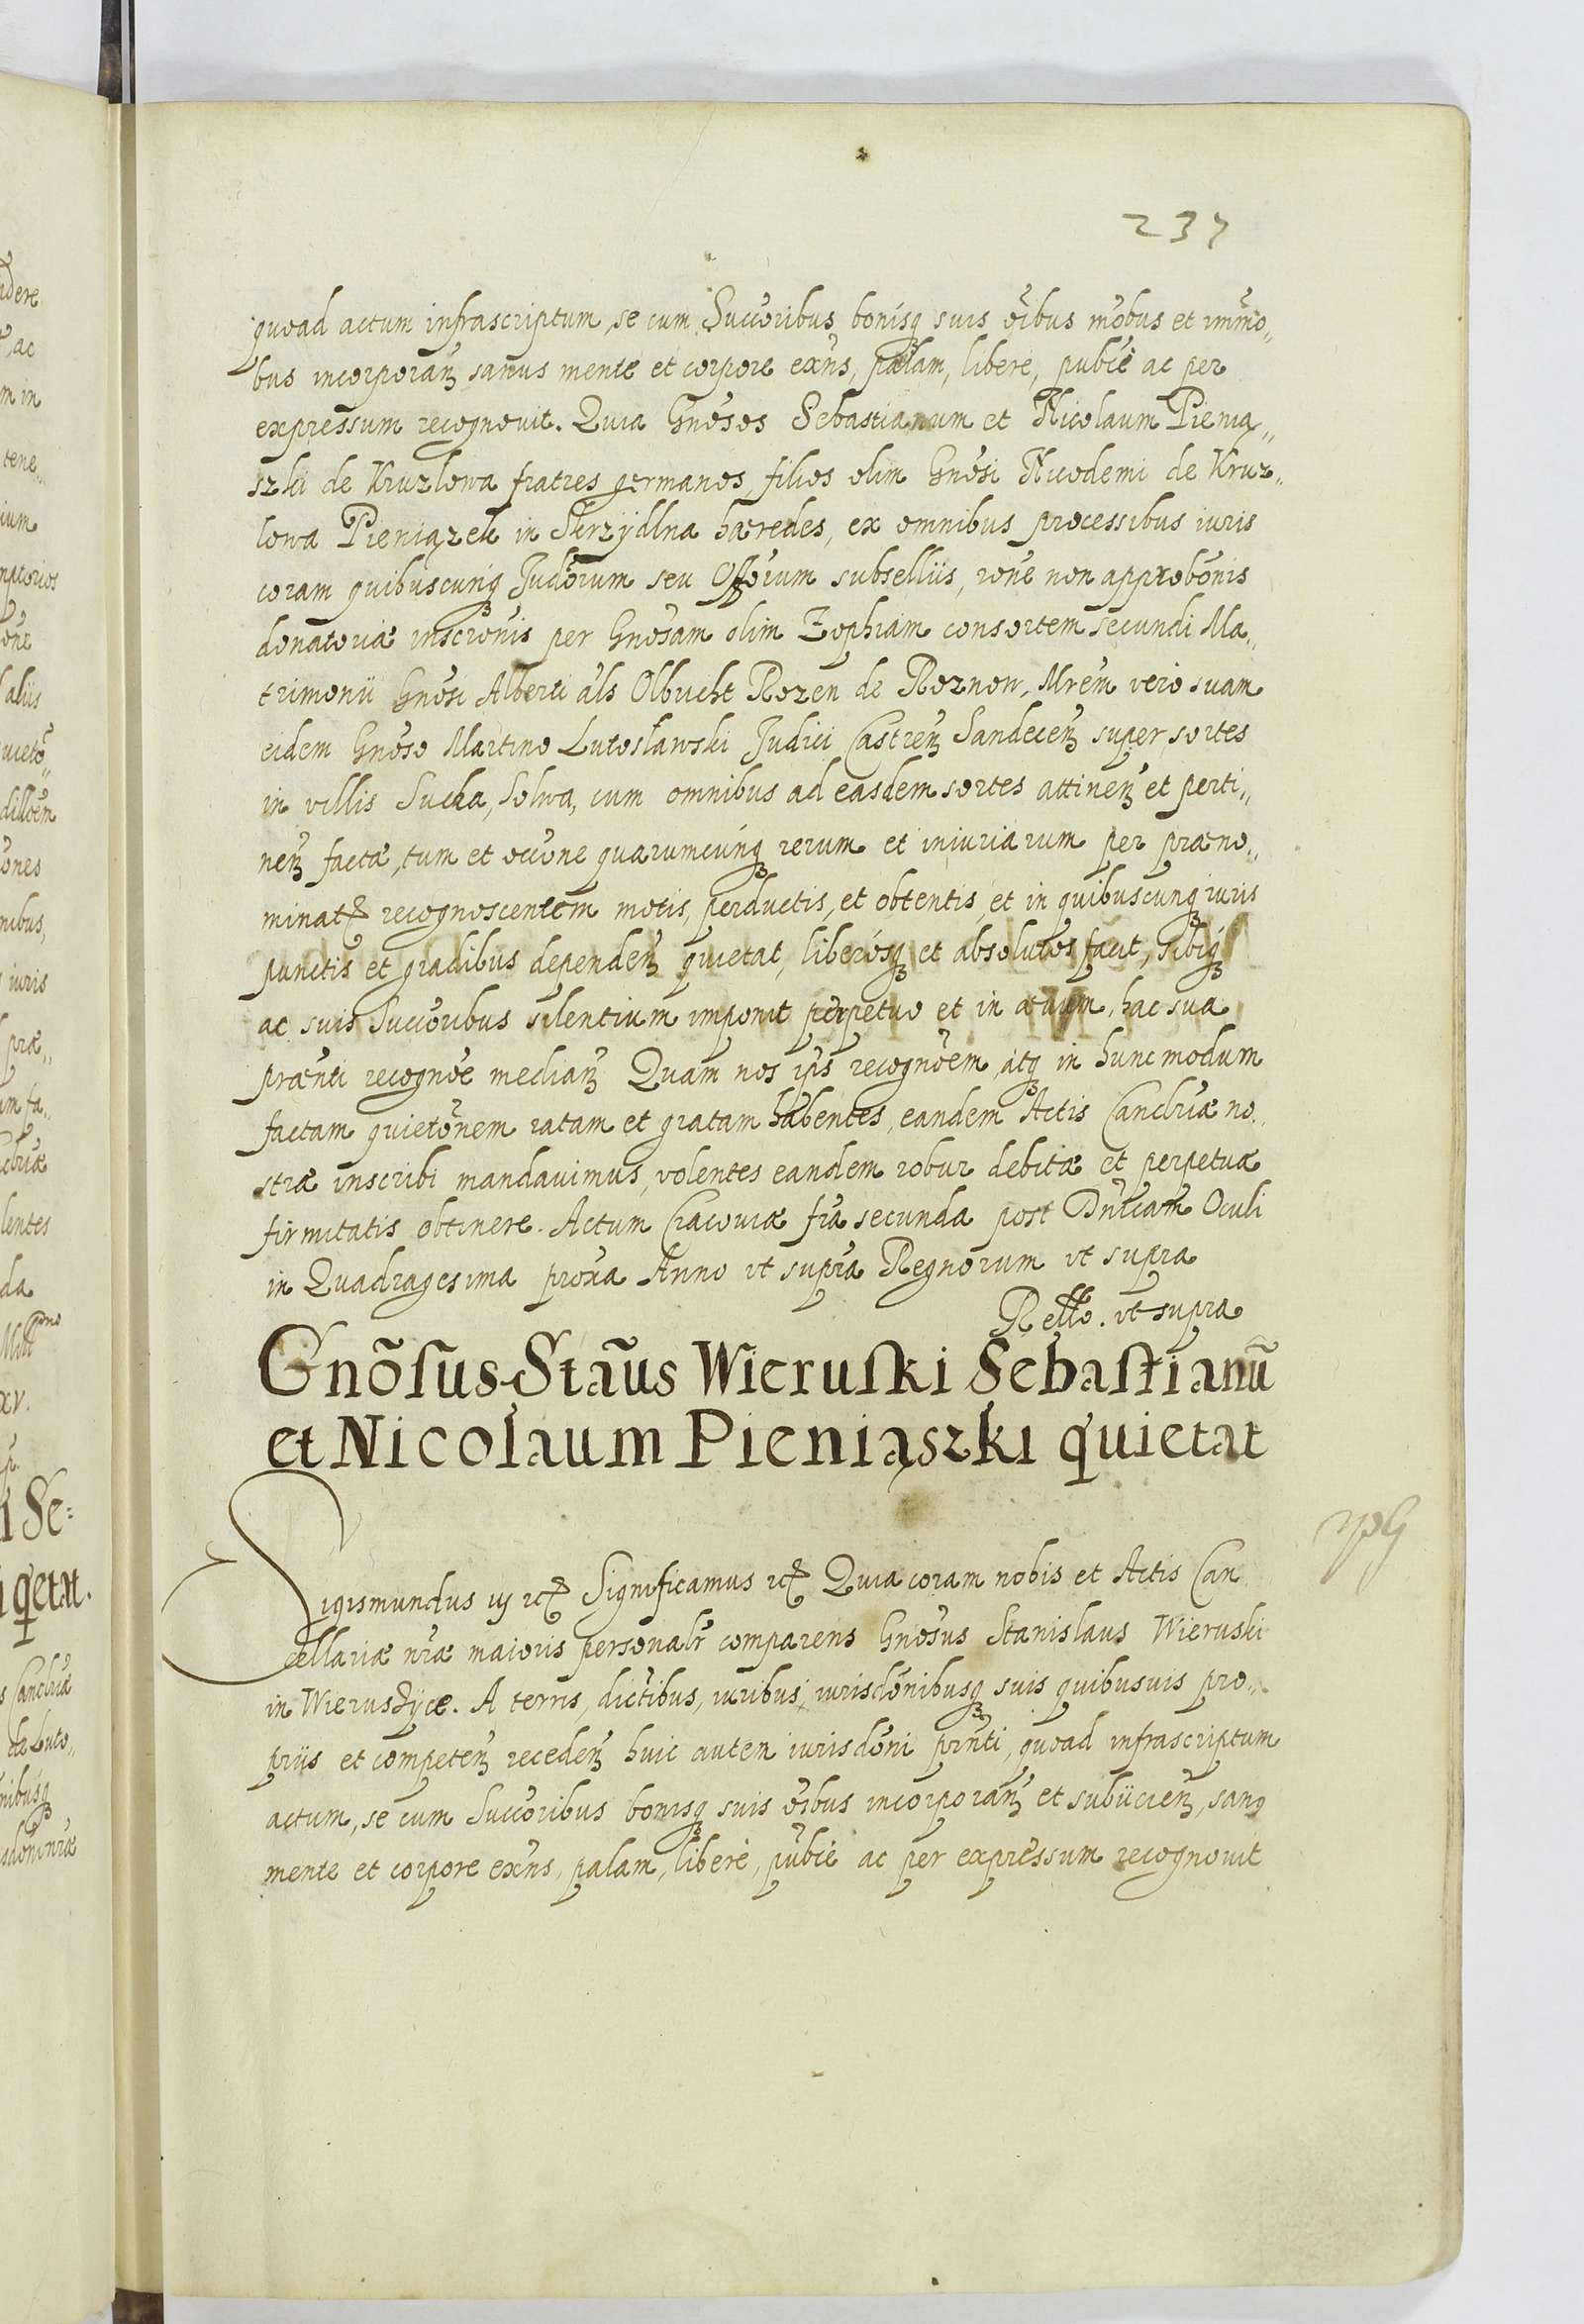 237
quoad actum infrascriptum, se cum Succoribus bonisq suis oibus mobus et immo„
bus incorporan sanus mente et corpore exns, palam, libere, publce ac per
expressum recognovit. Quia Gnosos Sebastianum et Nicolaum Pienią„
szki de Kruzlowa fratres germanos, filios olim Gnosi Nicodemi de Kruz„
lowa Pieniązek in Skrzÿdlna hæredes, ex omnibus processibus iuris
coram quibuscunq Judiorum seu Offorum subselliis, rone non approbonis
donatoriæ inscronis per Gnosam olim Zophiam consortem secundi Ma„
trimonii Gnosi Alberti als Olbricht Rozen de Roznow, Mrem vero suam
eidem Gnoso Martino Lutosławski Judici Castren Sandecen super sortes
in villis Sucha, Solwa, cum omnibus ad easdem sortes attinen et perti„
nen factæ, tum et occone quarumcunq rerum et iniuriarum per præno„
minat recognoscentem motis, perductis, et obtentis, et in quibuscunq iuris
punctis et gradibus dependen quietat, liberosq et absolutos facit, sibiq
ac suis Succoribus silentium imponit perpetuo et in ævum, hac sua
prænti recognoe median Quam nos ips recognoem, atq in hunc modum
factam quietonem ratam et gratam habentes, eandem Actis Cancelriæ no„
stræ inscribi mandavimus, volentes eandem robur debitæ et perpetuæ
firmitatis obtinere. Actum Cracoviæ fria secunda post Dnicam Oculi
in Quadragesima proxa Anno vt supra Regnorum vt supra
Retto. vt supra
Gnõsus Staũs Wieruski Sebastianũ
et Nicolaum Pieniąszki quietat
Sigismundus iij etc Significamus etc Quia coram nobis et Actis Can
cellariæ nræ maioris personalr comparens Gnosus Stanislaus Wieruski
in Wierusÿce. A terris, dictibus, iuribus, iurisdonibusq suis quibusuis pro„
priis et competen receden huic autem iurisdoni prnti, quoad infrascriptum
actum, se cum Succoribus bonisq suis oibus incorporan et subiicien, sang
mente et corpore exns, palam, libere, publce ac per expressum recognovit